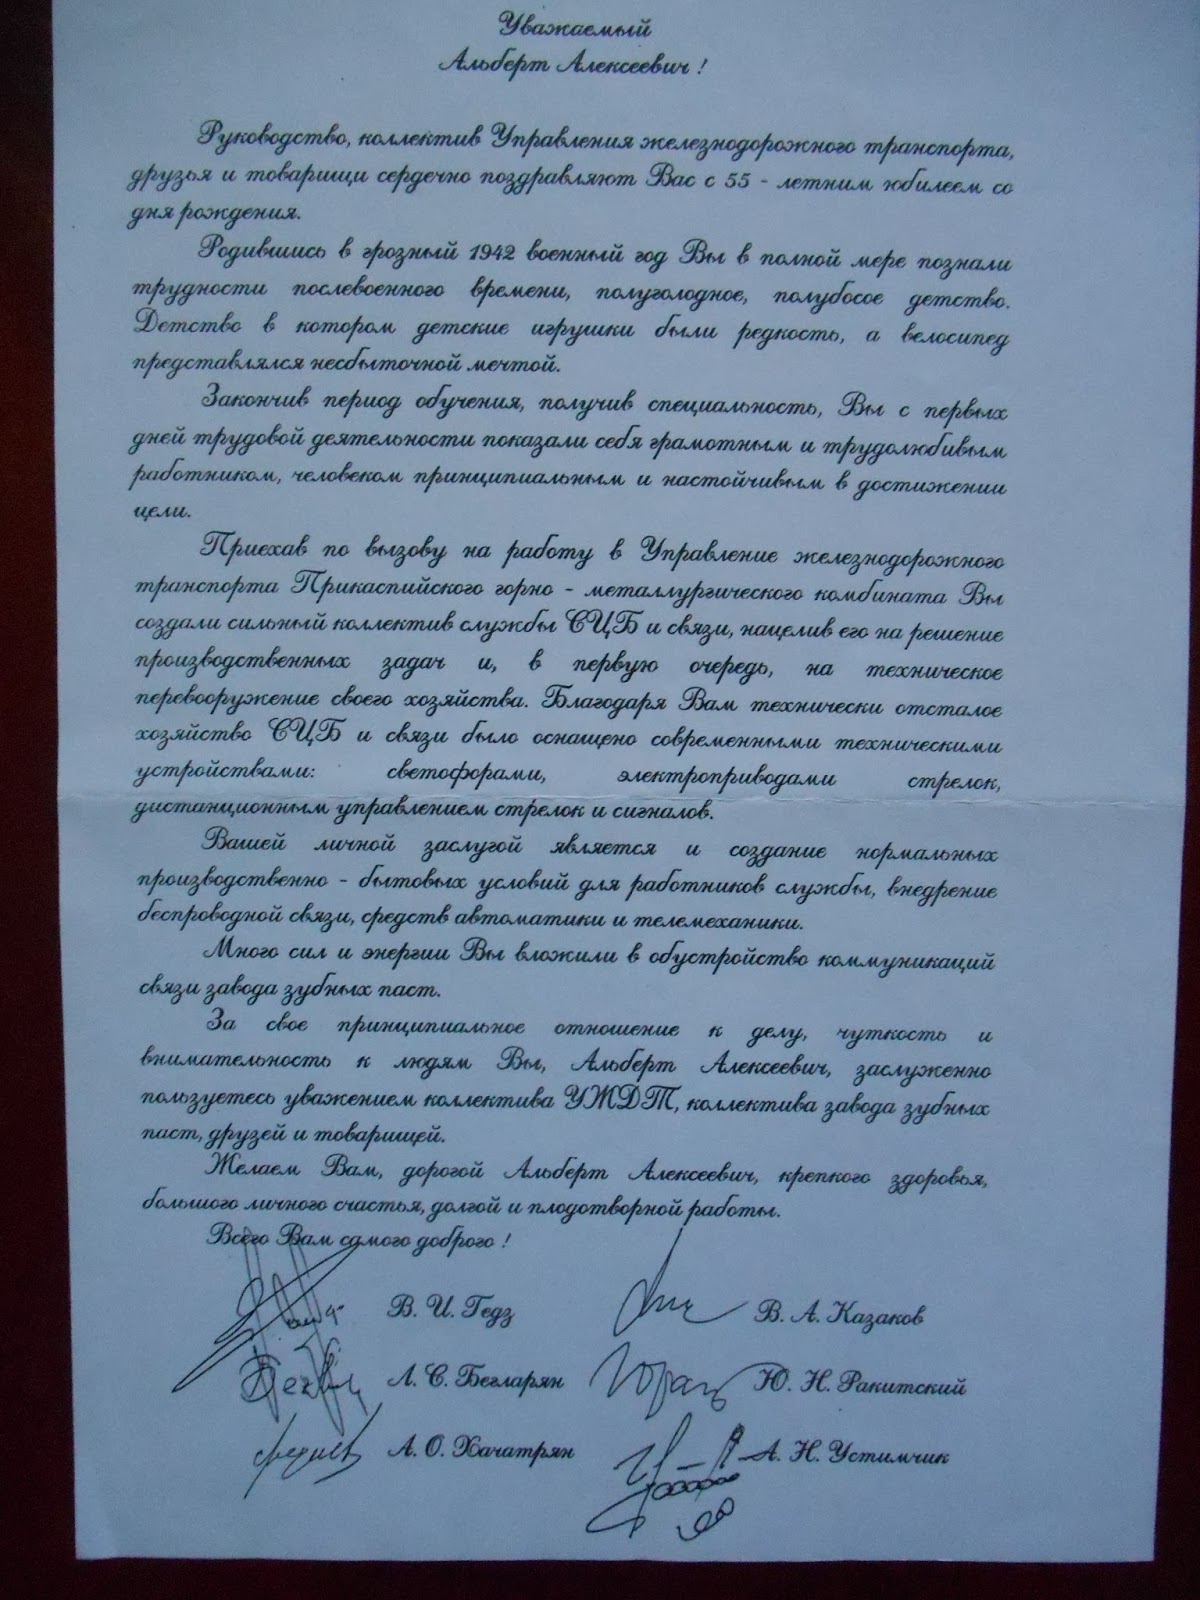 Уважаемый
Альберт Алексеевич !
Руководство, коллектив Управления железнодорожного транспорта,
друзья и товарищи сердечно поздравляют Вас с 55 - летним юбилеем со
дня рождения.
Родившись в грозный 1942 военный год Вы в полной мере познали
трудности послевоенного времени, полуголодное, полубосое детство.
Детство в котором детские игрушки были редкость, а велосипед
представлялся несбыточной мечтой.
Закончив период обучения, получив специальность, Вы с первых
дней трудовой деятельности показали себя грамотным и трудолюбивым
работником, человеком принципиальным и настойчивым в достижении
цели.
Приехав по вызову на работу в Управление железнодорожного
транспорта Прикаспийского горно - металлургического комбината Вы
создали сильный коллектив службы СЦБ и связи, нацелив его на решение
производственных задач и, в первую очередь, на техническое
перевооружение своего хозяйства. Благодаря Вам технически отсталое
хозяйство СЦБ и связи было оснащено современными техническими
устройствами: светофорами, электроприводами стрелок,
дистанционным управлением стрелок и сигналов.
Вашей личной заслугой является и создание нормальных
производственно - бытовых условий для работников службы, внедрение
беспроводной связи, средств автоматики и телемеханики.
Много сил и энергии Вы вложили в обустройство коммуникаций
связи завода зубных паст.
За свое принципиальное отношение к делу, чуткость и
внимательность к людям Вы, Альберт Алексеевич, заслуженно
пользуетесь уважением коллектива УЖДТ, коллектива завода зубных
паст, друзей и товарищей.
Желаем Вам, дорогой Альберт Алексеевич, крепкого здоровья,
большого личного счастья, долгой и плодотворной работы.
Всего Вам самого доброго !
В. И. Гедз В. А. Казаков
Л. С. Бегларян Ю. Н. Ракитский
А. О. Хачатрян А. Н. Устимчик